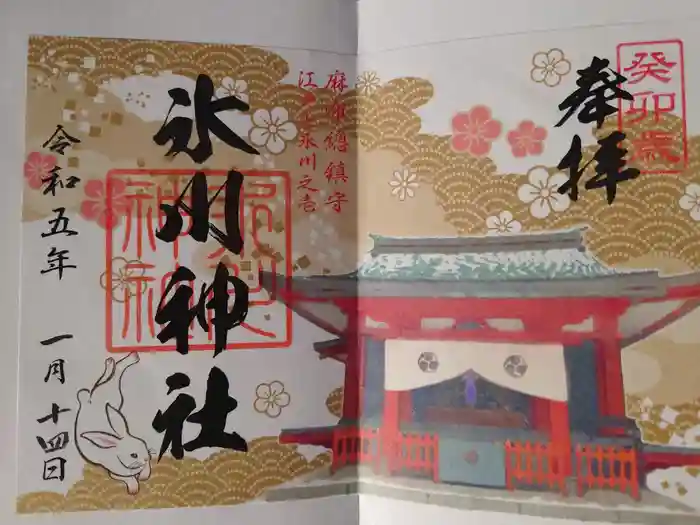 癸卯歳
奉拝
麻布總鎮守
江戸七氷川之壱
氷川神社
令和五年 一月 十四日